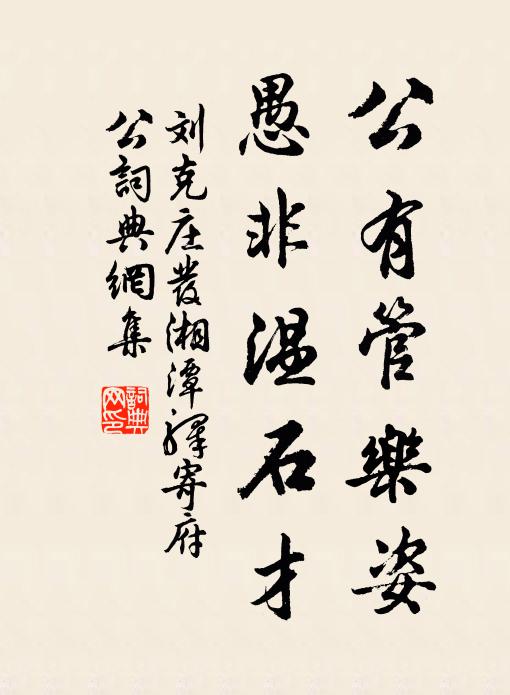 公有管樂姿
愚非温石才
刘克庄發湘潭驛寄府
公詞典網集
詞典
网印